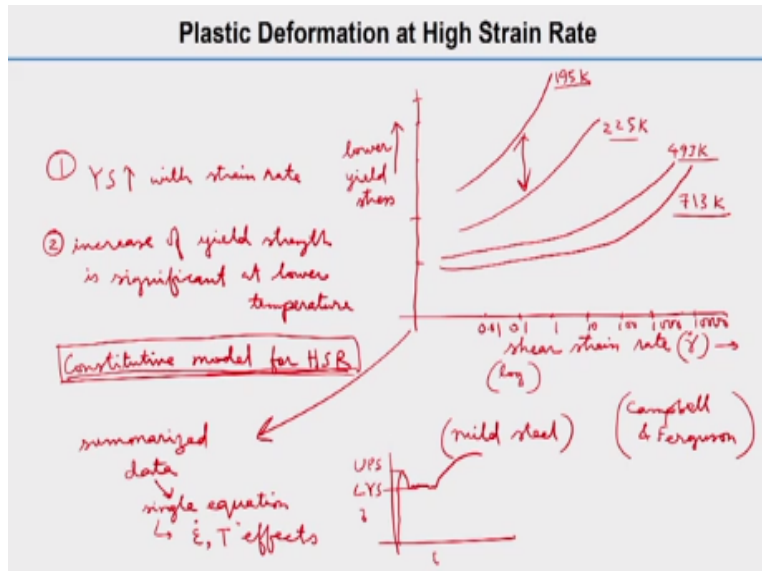 Plastic Deformation at High Strain Rate
① YS↑ with strain rate
② increase of yield strength
is significant at lower
temperature
Constitutive model for HSR
summarized
data
single equation
↳ ε̇, T effects
lower
yield
stress
195K
225K
493K
713K
0.01 0.1 1 10 100 1000 10000
shear strain rate (γ̇) →
(log)
(mild steel)
(Campbell
& Ferguson)
UYS
LYS